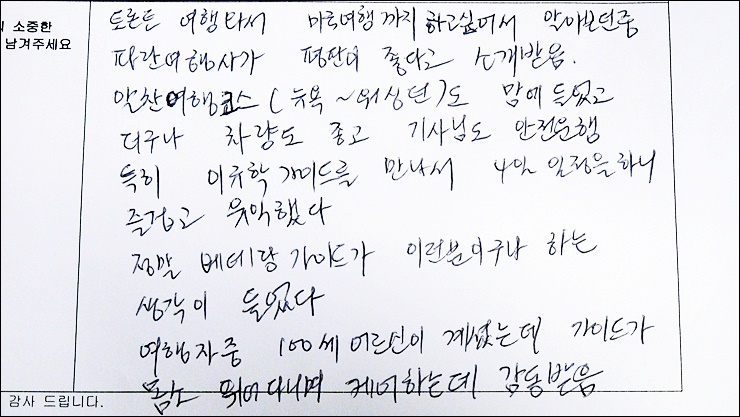 의 소중한
남겨주세요
토론토 여행와서 미국여행까지 하고싶어서 알아보던중
파란여행사가 평판이 좋다고 소개받음.
알찬여행코스(뉴욕~워싱턴)도 맘에 들었고
더구나 차량도 좋고 기사님도 안전운행
특히 이규학 가이드를 만나서 4일 일정을 하니
즐겁고 유익했다
정말 베테랑 가이드가 이런분이구나 하는
생각이 들었다
여행자중 100세 어르신이 계셨는데 가이드가
몸소 뛰어다니며 케어하는데 감동받음
감사 드립니다.